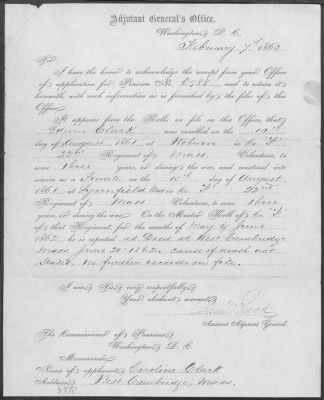 Adjutant General's Office,
Washington, D. C.
February 7th, 1863.
Sir:
I have the honor to acknowledge the receipt from your Office
of application for Pension No. 6788, and to return it
herewith, with such information as is furnished by the files of this
Office.
It appears from the Rolls on file in this Office, that
Edwin Clark was enrolled on the 19th
day of August 1861, at Woburn in Co. "F"
22nd Regiment of Mass Volunteers, to
serve three years, or during the war, and mustered into
service as a Private on the day of August
1861, at Lynnfield Mass in Co. "F" 22nd
Regiment of Mass Volunteers, to serve three
years, or during the war. On the Muster Roll of Co. "F"
of that Regiment, for the months of May & June
1862, he is reported as Died at West Cambridge
Mass June 20th 1862. cause of death not
stated. No further records on file.
I am, Sir, very respectfully,
Your obedient servant,
Assistant Adjutant General.
The Commissioner of Pensions,
Washington, D. C.
Memoranda:
Name of applicant, Caroline Clark
Address, West Cambridge, Mass.